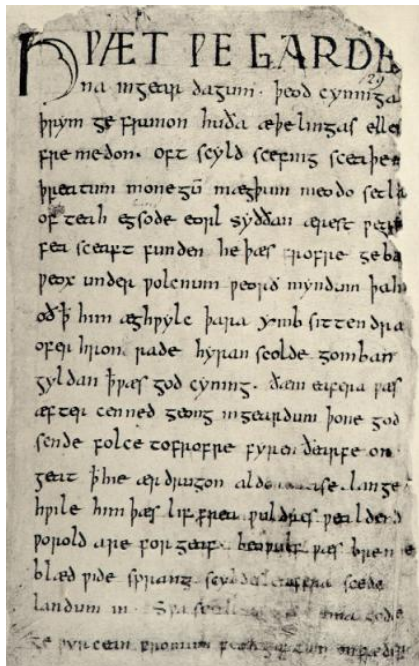 HǷÆT ǷE GARDE
na ingear dagum. þeod cyninga
þrym ge frunon huða æþelingas elle
fre medon. oft scyld scefing sceaþen
þreatum monegū mægþum meodo setla
of teah egsode eorl syððan ærest ƿearð
fea sceaft funden he þæs frofre geba
ƿeox under ƿolcnum ƿeorð myndum þah
oð ꝥ him æghƿylc þara ymb sittendra
ofer hron rade hyran scolde gomban
gyldan ꝥ ƿæs god cyning. ðæm eafera ƿæs
æfter cenned geong ingeardum þone god
sende folce tofrofre fyren ðearfe on
geat ꝥ hie ær drugon aldor ase. lange
hƿile him þæs lif frea ƿuldres ƿealdend
ƿorold are for geaf. beoƿulf ƿæs breme
blæd ƿide sprang scyldes eafera scede
landum in. Sƿa gode
ge ƿyrcean fromum feoh giftum